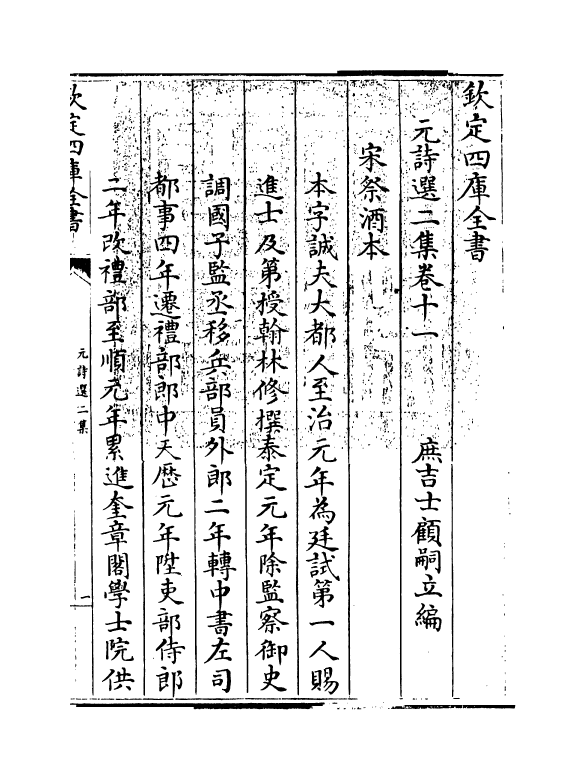 欽定四庫全書
元詩選二集卷十一　庶吉士顧嗣立編
宋祭酒本
本字誠夫大都人至治元年為廷試第一人賜
進士及第授翰林修撰泰定元年除監察御史
調國子監丞移兵部員外郎二年轉中書左司
都事四年遷禮部郎中天歷元年陞吏部侍郎
二年改禮部至順元年累進奎章閣學士院供
欽定四庫全書
元詩選二集
一